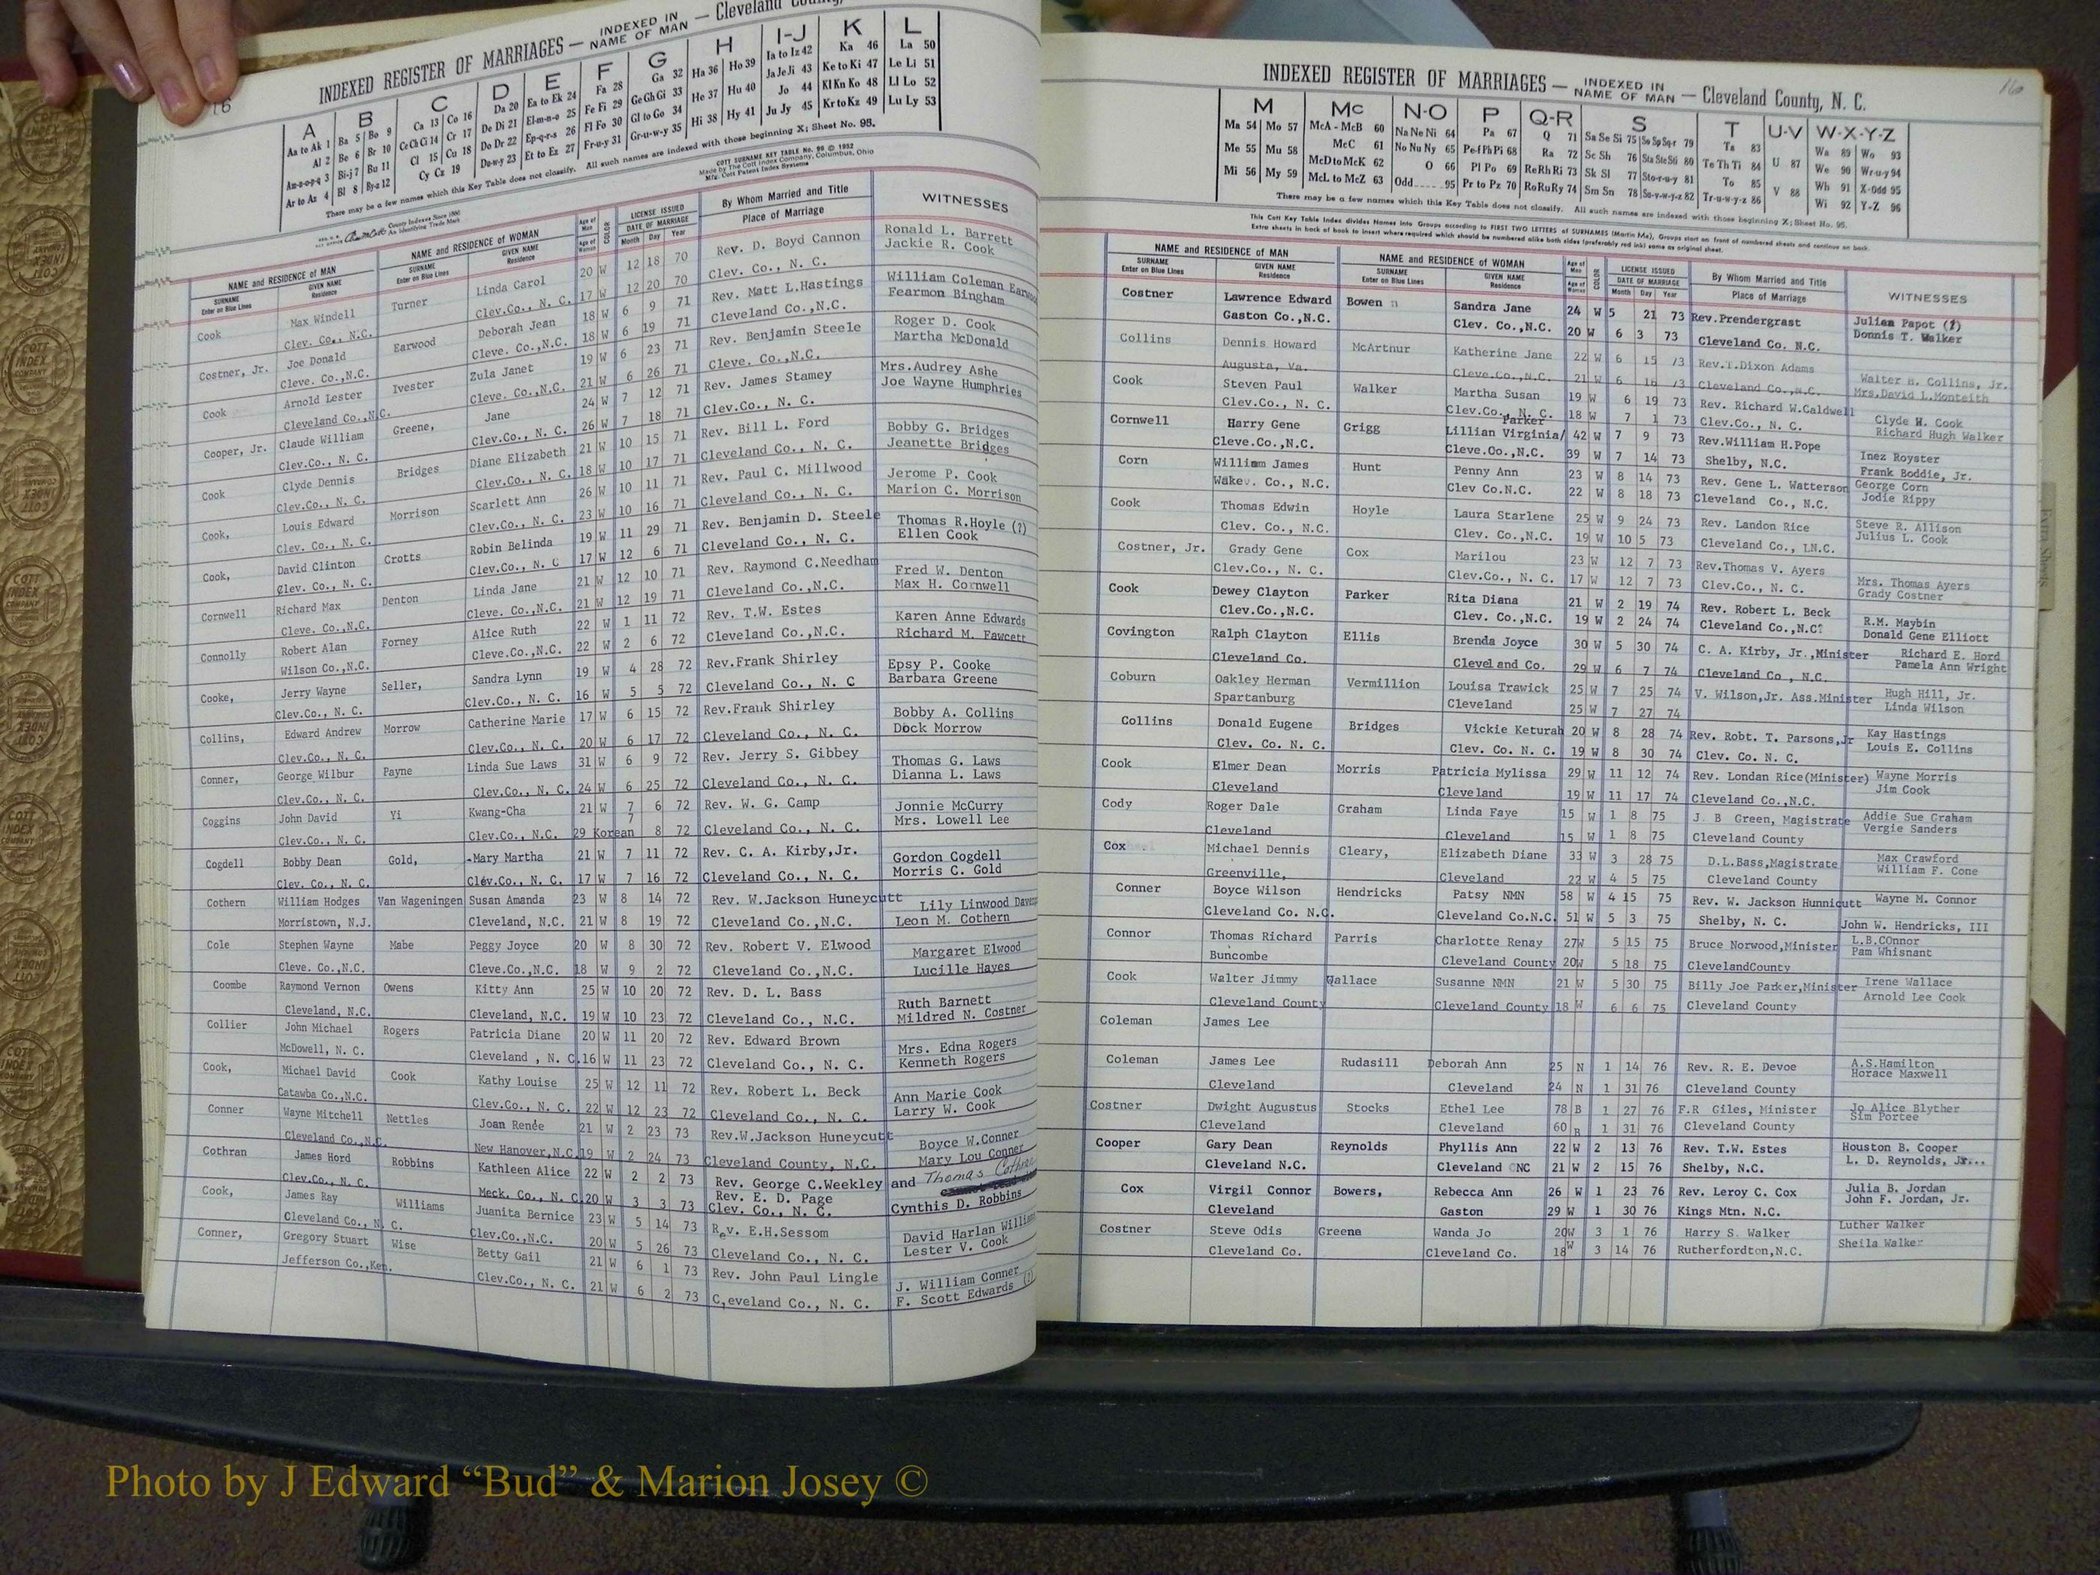 16
INDEXED REGISTER OF MARRIAGES — INDEXED IN NAME OF MAN — Cleveland County,
A B C D E F G H I-J K L
Aa to Ak 1 Ba 5 Bo 9 Ca 13 Co 16 Da 20 Ea to Ek 24 Fa 28 Ga 32 Ha 36 Ho 39 Ia to Iz 42 Ka 46 La 50
Al 2 Be 6 Br 10 Ce Ch Ci 14 Cr 17 De Di 21 El-m-n-o 25 Fe Fi 29 Ge Gh Gi 33 He 37 Hu 40 Ja Je Ji 43 Ke to Ki 47 Le Li 51
Am-n-o-p-q 3 Bi-j 7 Bu 11 Cl 15 Cu 18 Do Dr 22 Ep-q-r-s 26 Fl Fo 30 Gl to Go 34 Hi 38 Hy 41 Jo 44 Kl Kn Ko 48 Ll Lo 52
Ar to Az 4 Bl 8 By-z 12 Cy Cz 19 Du-w-y 23 Et to Ez 27 Fr-u-y 31 Gr-u-w-y 35 Ju Jy 45 Kr to Kz 49 Lu Ly 53
There may be a few names which this Key Table does not classify. All such names are indexed with those beginning X; Sheet No. 95.
COTT SURNAME KEY TABLE No. 96 © 1932
Made by The Cott Index Company, Columbus, Ohio
Mfg. Cott Patent Index Systems
County Indexes Since 1880
An Identifying Trade Mark
NAME and RESIDENCE of MAN NAME and RESIDENCE of WOMAN Age of Man COLOR LICENSE ISSUED By Whom Married and Title WITNESSES
SURNAME Enter on Blue Lines GIVEN NAME Residence SURNAME Enter on Blue Lines GIVEN NAME Residence Age of Woman DATE OF MARRIAGE Month Day Year Place of Marriage
Cook Max Windell Turner Linda Carol 20 W 12 18 70 Rev. D. Boyd Cannon Ronald L. Barrett
Clev. Co., N.C. Clev.Co., N. C. 17 W 12 20 70 Clev. Co., N. C. Jackie R. Cook
Costner, Jr. Joe Donald Earwood Deborah Jean 18 W 6 9 71 Rev. Matt L.Hastings William Coleman Earwood
Cleve. Co.,N.C. Cleve. Co.,N.C. 18 W 6 19 71 Cleveland Co.,N.C. Fearmon Bingham
Cook Arnold Lester Ivester Zula Janet 19 W 6 23 71 Rev. Benjamin Steele Roger D. Cook
Cleveland Co.,N.C. Cleve. Co.,N.C. 21 W 6 26 71 Cleve. Co.,N.C. Martha McDonald
Cooper, Jr. Claude William Greene, Jane 24 W 7 12 71 Rev. James Stamey Mrs.Audrey Ashe
Clev.Co., N. C. Clev.Co., N. C. 26 W 7 18 71 Clev.Co., N. C. Joe Wayne Humphries
Cook Clyde Dennis Bridges Diane Elizabeth 21 W 10 15 71 Rev. Bill L. Ford Bobby G. Bridges
Clev.Co., N. C. Clev.Co., N. C. 18 W 10 17 71 Cleveland Co., N. C. Jeanette Bridges
Cook, Louis Edward Morrison Scarlett Ann 26 W 10 11 71 Rev. Paul C. Millwood Jerome P. Cook
Clev. Co., N. C. Clev.Co., N. C. 23 W 10 16 71 Cleveland Co., N. C. Marion C. Morrison
Cook, David Clinton Crotts Robin Belinda 19 W 11 29 71 Rev. Benjamin D. Steele Thomas R.Hoyle (?)
Clev. Co., N. C. Clev.Co., N. C 17 W 12 6 71 Cleveland Co., N. C. Ellen Cook
Cornwell Richard Max Denton Linda Jane 21 W 12 10 71 Rev. Raymond C.Needham Fred W. Denton
Cleve. Co.,N.C. Cleve. Co.,N.C. 21 W 12 19 71 Cleveland Co.,N.C. Max H. Cornwell
Connolly Robert Alan Forney Alice Ruth 22 W 1 11 72 Rev. T.W. Estes Karen Anne Edwards
Wilson Co.,N.C. Cleve.Co.,N.C. 22 W 2 6 72 Cleveland Co.,N.C. Richard M. Fawcett
Cooke, Jerry Wayne Seller, Sandra Lynn 19 W 4 28 72 Rev.Frank Shirley Epsy P. Cooke
Clev.Co., N. C. Clev.Co., N. C. 16 W 5 5 72 Cleveland Co., N. C Barbara Greene
Collins, Edward Andrew Morrow Catherine Marie 17 W 6 15 72 Rev.Frank Shirley Bobby A. Collins
Clev.Co., N. C. Clev.Co., N. C. 20 W 6 17 72 Cleveland Co., N. C. Dock Morrow
Conner, George Wilbur Payne Linda Sue Laws 31 W 6 9 72 Rev. Jerry S. Gibbey Thomas G. Laws
Clev.Co., N. C. Clev.Co., N. C. 24 W 6 25 72 Cleveland Co., N. C. Dianna L. Laws
Coggins John David Yi Kwang-Cha 21 W 7 6 72 Rev. W. G. Camp Jonnie McCurry
Clev.Co., N. C. Clev.Co., N.C. 29 Korean 7 8 72 Cleveland Co., N. C. Mrs. Lowell Lee
Cogdell Bobby Dean Gold, Mary Martha 21 W 7 11 72 Rev. C. A. Kirby,Jr. Gordon Cogdell
Clev. Co., N. C. Clev.Co., N. C. 17 W 7 16 72 Cleveland Co., N. C. Morris C. Gold
Cothern William Hodges Van Wageningen Susan Amanda 23 W 8 14 72 Rev. W.Jackson Huneycutt Lily Linwood
Morristown, N.J. Cleveland, N.C. 21 W 8 19 72 Cleveland Co.,N.C. Leon M. Cothern
Cole Stephen Wayne Mabe Peggy Joyce 20 W 8 30 72 Rev. Robert V. Elwood Margaret Elwood
Cleve. Co.,N.C. Cleve.Co.,N.C. 18 W 9 2 72 Cleveland Co.,N.C. Lucille Hayes
Coombe Raymond Vernon Owens Kitty Ann 25 W 10 20 72 Rev. D. L. Bass Ruth Barnett
Cleveland, N.C. Cleveland, N.C. 19 W 10 23 72 Cleveland Co., N.C. Mildred N. Costner
Collier John Michael Rogers Patricia Diane 20 W 11 20 72 Rev. Edward Brown Mrs. Edna Rogers
McDowell, N. C. Cleveland , N. C. 16 W 11 23 72 Cleveland Co., N. C. Kenneth Rogers
Cook, Michael David Cook Kathy Louise 25 W 12 11 72 Rev. Robert L. Beck Ann Marie Cook
Catawba Co.,N.C. Clev.Co., N. C. 22 W 12 23 72 Cleveland Co., N. C. Larry W. Cook
Conner Wayne Mitchell Nettles Joan Renée 21 W 2 23 73 Rev.W.Jackson Huneycutt Boyce W.Conner
Cleveland Co.,N.C. New Hanover,N.C. 19 W 2 24 73 Cleveland County, N.C. Mary Lou Conner
Cothran James Hord Robbins Kathleen Alice 22 W 2 2 73 Rev. George C.Weekley and Thomas Cothran
Clev.Co., N. C. Meck. Co., N. C. 20 W 3 3 73 Rev. E. D. Page Clev. Co., N. C. Cynthis D. Robbins
Cook, James Ray Williams Juanita Bernice 23 W 5 14 73 Rev. E.H.Sessom David Harlan Williams
Cleveland Co., N. C. Clev.Co.,N.C. 20 W 5 26 73 Cleveland Co., N. C. Lester V. Cook
Conner, Gregory Stuart Wise Betty Gail 21 W 6 1 73 Rev. John Paul Lingle J. William Conner
Jefferson Co.,Ken. Clev.Co., N. C. 21 W 6 2 73 C,eveland Co., N. C. F. Scott Edwards (?)
16
INDEXED REGISTER OF MARRIAGES — INDEXED IN NAME OF MAN — Cleveland County, N. C.
M Mc N-O P Q-R S T U-V W-X-Y-Z
Ma 54 Mo 57 McA - McB 60 Na Ne Ni 64 Pa 67 Q 71 Sa Se Si 75 So Sp Sq-r 79 Ta 83 Wa 89 Wo 93
Me 55 Mu 58 McC 61 No Nu Ny 65 Pe-f Ph Pi 68 Ra 72 Sc Sh 76 Sta Ste Sti 80 Te Th Ti 84 U 87 We 90 Wr-u-y 94
Mi 56 My 59 McD to McK 62 O 66 Pl Po 69 Re Rh Ri 73 Sk Sl 77 Sto-r-u-y 81 To 85 V 88 Wh 91 X-Odd 95
McL to McZ 63 Odd 95 Pr to Pz 70 Ro Ru Ry 74 Sm Sn 78 Su-v-w-y-z 82 Tr-u-w-y-z 86 Wi 92 Y-Z 96
There may be a few names which this Key Table does not classify. All such names are indexed with those beginning X; Sheet No. 95.
This Cott Key Table Index divides Names into Groups according to FIRST TWO LETTERS of SURNAMES (Martin Ma), Groups start on front of numbered sheets and continue on back.
Extra sheets in back of book to insert where required which should be numbered alike both sides (preferably red ink) same as original sheet.
NAME and RESIDENCE of MAN NAME and RESIDENCE of WOMAN Age of Man COLOR LICENSE ISSUED By Whom Married and Title WITNESSES
SURNAME Enter on Blue Lines GIVEN NAME Residence SURNAME Enter on Blue Lines GIVEN NAME Residence Age of Woman DATE OF MARRIAGE Month Day Year Place of Marriage
Costner Lawrence Edward Bowen Sandra Jane 24 W 5 21 73 Rev.Prendergrast Julian Papot (?)
Gaston Co.,N.C. Clev. Co.,N.C. 20 W 6 3 73 Cleveland Co. N.C. Donnis T. Walker
Collins Dennis Howard McArthur Katherine Jane 22 W 6 15 73 Rev.T.Dixon Adams Walter H. Collins, Jr.
Augusta, Va. Cleve.Co.,N.C. 21 W 6 16 73 Cleveland Co.,N.C. Mrs.David L.Monteith
Cook Steven Paul Walker Martha Susan 19 W 6 19 73 Rev. Richard W.Caldwell Clyde W. Cook
Clev.Co., N. C. Clev.Co., N. C. 18 W 7 1 73 Clev.Co., N. C. Richard Hugh Walker
Cornwell Harry Gene Grigg Lillian Virginia/ Parker 42 W 7 9 73 Rev.William H.Pope Inez Royster
Cleve.Co.,N.C. Cleve.Co.,N.C. 39 W 7 14 73 Shelby, N.C. Frank Boddie, Jr.
Corn William James Hunt Penny Ann 23 W 8 14 73 Rev. Gene L. Watterson George Corn
Wake. Co., N.C. Clev Co.N.C. 22 W 8 18 73 Cleveland Co., N.C. Jodie Rippy
Cook Thomas Edwin Hoyle Laura Starlene 25 W 9 24 73 Rev. Landon Rice Steve R. Allison
Clev. Co., N.C. Clev. Co.,N.C. 19 W 10 5 73 Cleveland Co., LN.C. Julius L. Cook
Costner, Jr. Grady Gene Cox Marilou 23 W 12 7 73 Rev.Thomas V. Ayers Mrs. Thomas Ayers
Clev.Co., N. C. Clev.Co., N. C. 17 W 12 7 73 Clev.Co., N. C. Grady Costner
Cook Dewey Clayton Parker Rita Diana 21 W 2 19 74 Rev. Robert L. Beck R.M. Maybin
Clev.Co.,N.C. Clev. Co.,N.C. 19 W 2 24 74 Cleveland Co.,N.C. Donald Gene Elliott
Covington Ralph Clayton Ellis Brenda Joyce 30 W 5 30 74 C. A. Kirby, Jr.,Minister Richard E. Hord
Cleveland Co. Cleveland Co. 29 W 6 7 74 Cleveland Co., N.C. Pamela Ann Wright
Coburn Oakley Herman Vermillion Louisa Trawick 25 W 7 25 74 V. Wilson,Jr. Ass.Minister Hugh Hill, Jr.
Spartanburg Cleveland 25 W 7 27 74 Linda Wilson
Collins Donald Eugene Bridges Vickie Keturah 20 W 8 28 74 Rev. Robt. T. Parsons,Jr Kay Hastings
Clev. Co. N. C. Clev. Co. N. C. 19 W 8 30 74 Clev. Co. N. C. Louis E. Collins
Cook Elmer Dean Morris Patricia Mylissa 29 W 11 12 74 Rev. Londan Rice(Minister) Wayne Morris
Cleveland Cleveland 19 W 11 17 74 Cleveland Co.,N.C. Jim Cook
Cody Roger Dale Graham Linda Faye 15 W 1 8 75 J. B Green, Magistrate Addie Sue Graham
Cleveland Cleveland 15 W 1 8 75 Cleveland County Vergie Sanders
Cox Michael Dennis Cleary, Elizabeth Diane 33 W 3 28 75 D.L.Bass,Magistrate Max Crawford
Greenville, Cleveland 22 W 4 5 75 Cleveland County William F. Cone
Conner Boyce Wilson Hendricks Patsy NMN 58 W 4 15 75 Rev. W. Jackson Hunnicutt Wayne M. Connor
Cleveland Co. N.C. Cleveland Co.N.C. 51 W 5 3 75 Shelby, N. C. John W. Hendricks, III
Connor Thomas Richard Parris Charlotte Renay 27 W 5 15 75 Bruce Norwood,Minister L.B.COnnor
Buncombe Cleveland County 20 W 5 18 75 ClevelandCounty Pam Whisnant
Cook Walter Jimmy Wallace Susanne NMN 21 W 5 30 75 Billy Joe Parker,Minister Irene Wallace
Cleveland County Cleveland County 18 W 6 6 75 Cleveland County Arnold Lee Cook
Coleman James Lee
Coleman James Lee Rudasill Deborah Ann 25 N 1 14 76 Rev. R. E. Devoe A.S.Hamilton
Cleveland Cleveland 24 N 1 31 76 Cleveland County Horace Maxwell
Costner Dwight Augustus Stocks Ethel Lee 78 B 1 27 76 F.R Giles, Minister Jo Alice Blyther
Cleveland Cleveland 60 B 1 31 76 Cleveland County Sim Portee
Cooper Gary Dean Reynolds Phyllis Ann 22 W 2 13 76 Rev. T.W. Estes Houston B. Cooper
Cleveland N.C. Cleveland NC 21 W 2 15 76 Shelby, N.C. L. D. Reynolds, Jr...
Cox Virgil Connor Bowers, Rebecca Ann 26 W 1 23 76 Rev. Leroy C. Cox Julia B. Jordan
Cleveland Gaston 29 W 1 30 76 Kings Mtn. N.C. John F. Jordan, Jr.
Costner Steve Odis Greene Wanda Jo 20 W 3 1 76 Harry S. Walker Luther Walker
Cleveland Co. Cleveland Co. 18 W 3 14 76 Rutherfordton,N.C. Sheila Walker
Photo by J Edward “Bud” & Marion Josey ©